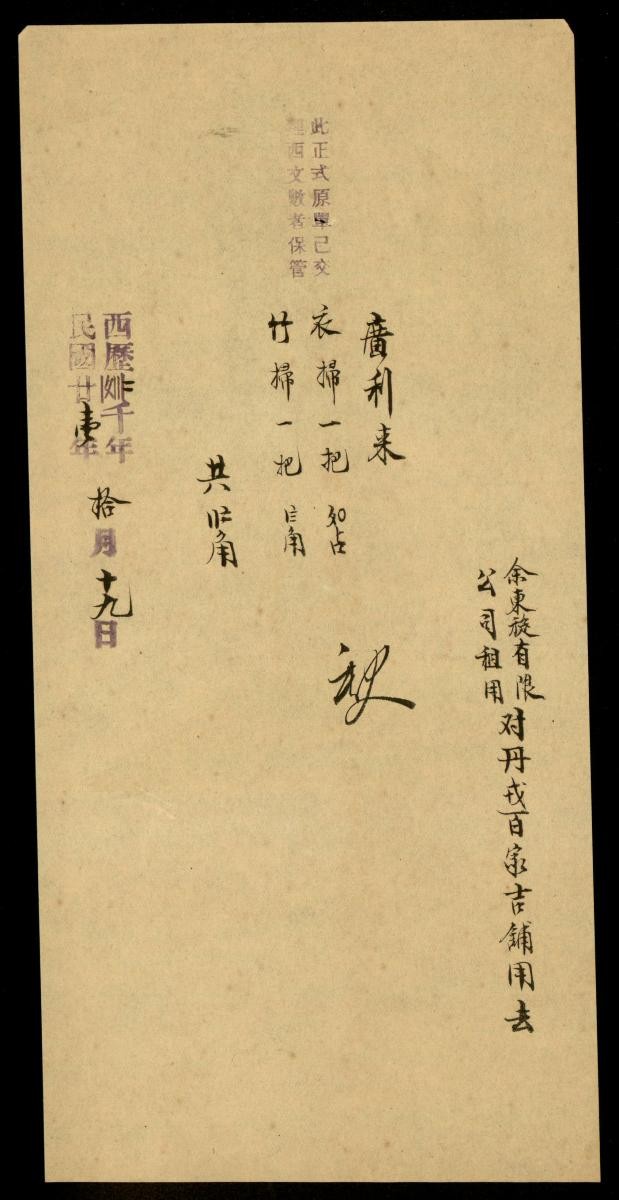 余東旋有限
公司租用
对丹戎百家吉鋪用去
此正式原單已交
理西文數者保管
廣利来
衣掃一把
竹掃一把 角
共 角
西歷 千 年
民國廿壹年
拾月十九日